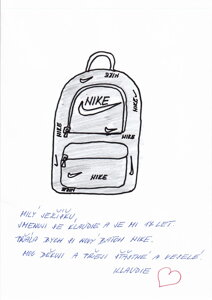 NIKE
NIKE
NIKE
NIKE
NIKE
NIKE
MILÝ JEŽÍŠKU,
JMENUJI SE KLAUDIE A JE MI LET.
PŘÁLA BYCH SI NOVÝ BATOH NIKE.
MOC DĚKUJI A PŘEJI ŠŤASTNÉ A VESELÉ.
KLAUDIE